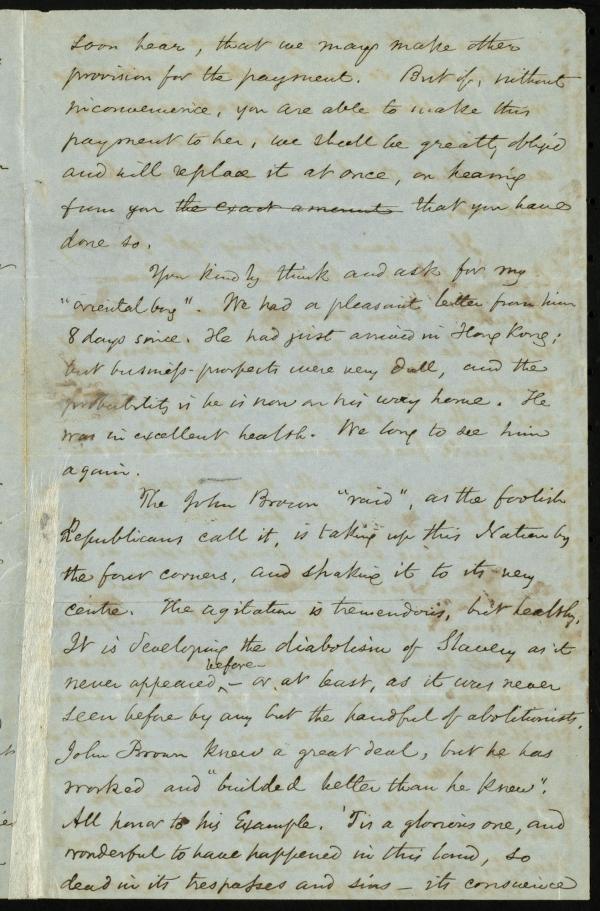 soon hear, that we may make other
provision for the payment. But if, without
inconvenience, you are able to make this
payment to her, we shall be greatly obliged
and will replace it at once, on hearing
from you the exact amount that you have
done so.
You kindly think and ask for my
"oriental boy". We had a pleasant letter from him
8 days since. He had just arrived in Hong Kong;
but business-prospects were very dull, and the
probability is he is now on his way home. He
was in excellent health. We long to see him
again.
The John Brown "raid", as the foolish
Republicans call it, is taking up this Nation by
the four corners, and shaking it to its very
centre. The agitation is tremendous, but healthy.
It is developing the diabolism of Slavery as it
never appeared before – or, at least, as it was never
seen before by any but the handful of abolitionists.
John Brown knew a great deal, but he has
worked and "builded better than he knew".
All honor to his Example. 'Tis a glorious one, and
wonderful to have happened in this land, so
dead in its trespasses and sins – its conscience